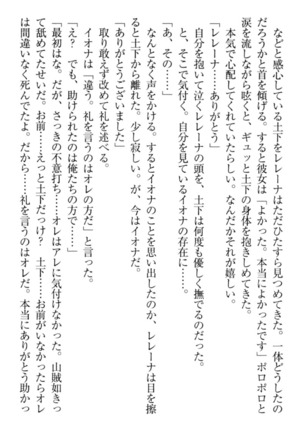 などと感心している土下をレレーナはただひたすら見つめてきた。一体どうしたの
だろうかと首を傾げる。すると彼女は「よかった。本当によかったです」ボロボロと
涙を流しながら呟くと、ギュッと土下の身体を抱きしめてきた。
本気で心配してくれていたらしい。なんだかそれが嬉しい。
「レレーナ……ありがとう」
自分を抱いて泣くレレーナの頭を、土下は何度も優しく撫でるのだった。
と、そこで気付く。自分を見ているイオナの存在に……。
「あ、その……」
なんとなく声をかける。するとイオナのことを思い出したのか、レレーナは目を擦
ると土下から離れた。少し寂しい。が、今はイオナだ。
「ありがとうございました」
取り敢えず改めて礼を述べる。
イオナは「違う。礼を言うのはオレの方だ」と言った。
「え？　でも、助けられたのは俺たちの方で……」
「最初はな。だが、さっきの不意打ち……オレはアレに気付けなかった。山賊如きっ
て舐めてたせいだ。お前……えっと土下だっけ？　土下……お前がいなかったらオレ
は間違いなく死んでたよ。だから……礼を言うのはオレだ。本当にありがとう助かっ